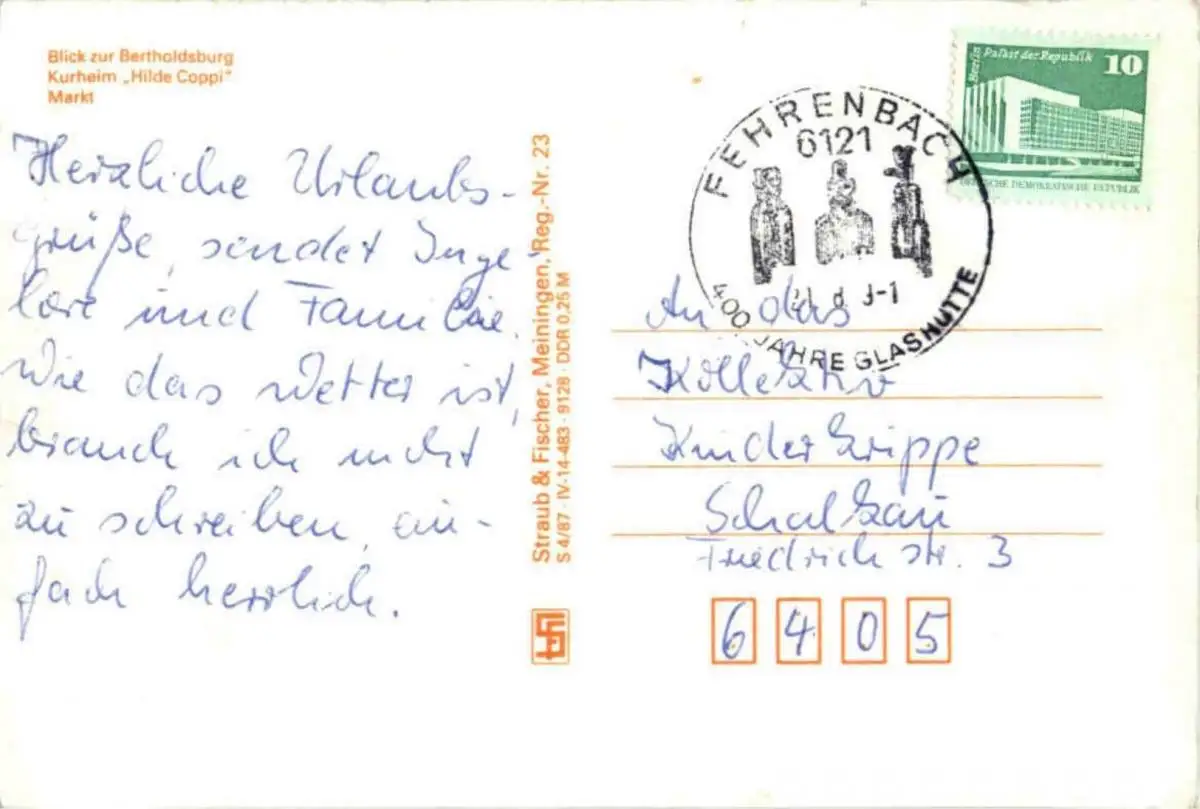 Blick zur Bertholdsburg
Kurheim „Hilde Coppi"
Markt
Herzliche Urlaubs-
grüße, sendet Inge
lore und Familie.
Wie das Wetter ist,
brauch ich nicht
zu schreiben, ein-
fach herrlich.
Straub & Fischer, Meiningen, Reg.-Nr. 23
S 4/87 · IV-14-483 · 9128 · DDR 0,25 M
Berlin Palast der Republik 10
DEUTSCHE DEMOKRATISCHE REPUBLIK
FEHRENBACH
6121
400 JAHRE GLASHÜTTE
An das
Kollektiv
Kinderkrippe
Schalkau
Friedrichstr. 3
6405